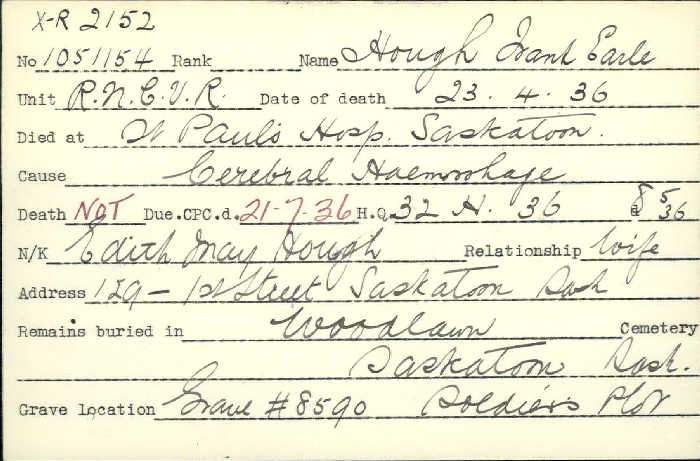 X-R 2152
No 1051154 Rank Name Hough Grant Earle
Unit R.N.C.V.R. Date of death 23. 4. 36
Died at St Paul's Hosp. Saskatoon.
Cause Cerebral Haemorrhage
Death NOT Due.CPC.d. 21-7-36 H.Q. 32 H. 36 d 8/5/36
N/K Edith May Hough Relationship Wife
Address 129 - 1st Street Saskatoon Sask
Remains buried in Woodlawn Cemetery
Saskatoon Sask.
Grave location Grave #8590 Soldiers Plot